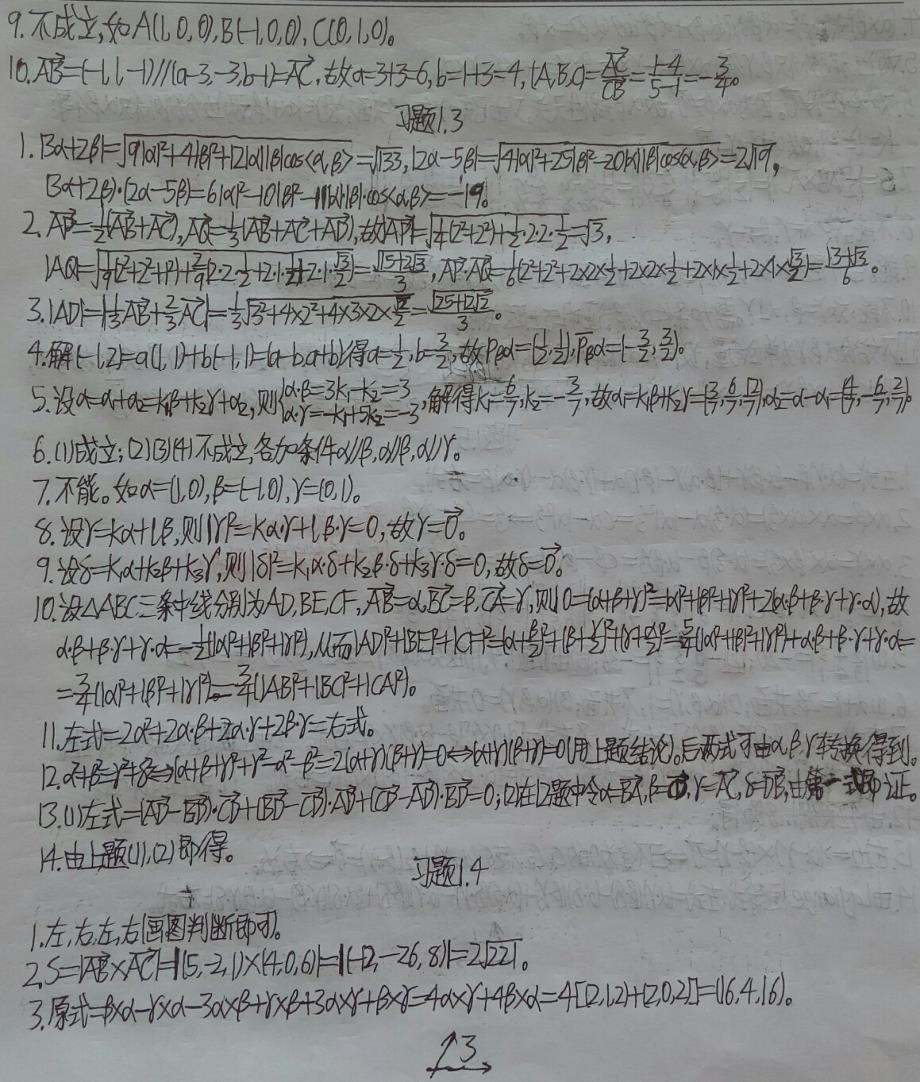 9.不成立,如A(1,0,0),B(-1,0,0),C(0,1,0)。
10.AB=(-1,1,-1)//(a-3,-3,b-1)=AC,故a=3+3=6,b=1+3=4,(A,B,C)=AC/CB=(1-4)/(5-1)=-3/4。
习题1.3
1.|3α+2β|=√(9|α|²+4|β|²+12|α||β|cos<α,β>)=√133,|2α-5β|=√(4|α|²+25|β|²-20|α||β|cos<α,β>)=2√19,
(3α+2β)·(2α-5β)=6|α|²-10|β|²-11|α||β|·cos<α,β>=-19。
2.AP=1/2(AB+AC),AQ=1/3(AB+AC+AD),故|AP|=√(1/4(2²+2²)+1/2·2·2·1/2)=√3,
|AQ|=√(1/9(2²+2²+1²)+2/9(2·2·1/2+2·1·1/2+2·1·√3/2))=√(15+2√3)/3,AP·AQ=1/6(2²+2²+2×2×1/2+2×2×1/2+2×1×1/2+2×1×√3/2)=(13+√3)/6。
3.|AD|=|1/3AB+2/3AC|=1/3√(3²+4×2²+4×3×2×√2/2)=√(25+12√2)/3。
4.解(-1,2)=a(1,1)+b(-1,1)=(a-b,a+b)得a=1/2,b=3/2,故Pβα=(1/2,1/2),Pβα=(-3/2,3/2)。
5.设α=α₁+α₂=k₁β+k₂γ+α₂,则{α·β=3k₁-k₂=3 α·γ=-k₁+5k₂=-3,解得k₁=6/7,k₂=-3/7,故α₁=k₁β+k₂γ=(3/7,6/7,12/7),α₂=α-α₁=(4/7,-6/7,2/7)。
6.(1)成立;(2)(3)(4)不成立,各加条件α//β,α//β,α//γ。
7.不能。如α=(1,0),β=(-1,0),γ=(0,1)。
8.设γ=kα+lβ,则|γ|²=kα·γ+lβ·γ=0,故γ=0。
9.设δ=k₁α+k₂β+k₃γ,则|δ|²=k₁α·δ+k₂β·δ+k₃γ·δ=0,故δ=0。
10.设△ABC三条中线分别为AD,BE,CF,AB=α,BC=β,CA=γ,则0=(α+β+γ)²=|α|²+|β|²+|γ|²+2(α·β+β·γ+γ·α),故
α·β+β·γ+γ·α=-1/2(|α|²+|β|²+|γ|²),从而|AD|²+|BE|²+|CF|²=|α+β/2|²+|β+γ/2|²+|γ+α/2|²=5/4(|α|²+|β|²+|γ|²)+α·β+β·γ+γ·α=
=3/4(|α|²+|β|²+|γ|²)=3/4(|AB|²+|BC|²+|CA|²)。
11.左式=2α²+2α·β+2α·γ+2β·γ=右式。
12.α²+β²=γ²+δ²⇔(α+β+γ)²+γ²-α²-β²=2(α+γ)(β+γ)=0⇔(α+γ)(β+γ)=0(用上题结论)。后两式可由α,β,γ转换得到。
13.(1)左式=(AD-BD)·CD+(BD-CD)·AD+(CD-AD)·BD=0;(2)在12题中令α=BA,β=CD,γ=AC,δ=DB,由第一式即证。
14.由上题(1),(2)即得。
习题1.4
1.左,右,左,右(画图判断即可)。
2.S=|AB×AC|=|(5,-2,1)×(4,0,6)|=|(-12,-26,8)|=2√221。
3.原式=β×α-γ×α-3α×β+γ×β+3α×γ+β×γ=4α×γ+4β×α=4[(2,1,2)+(2,0,2)]=(16,4,16)。
13